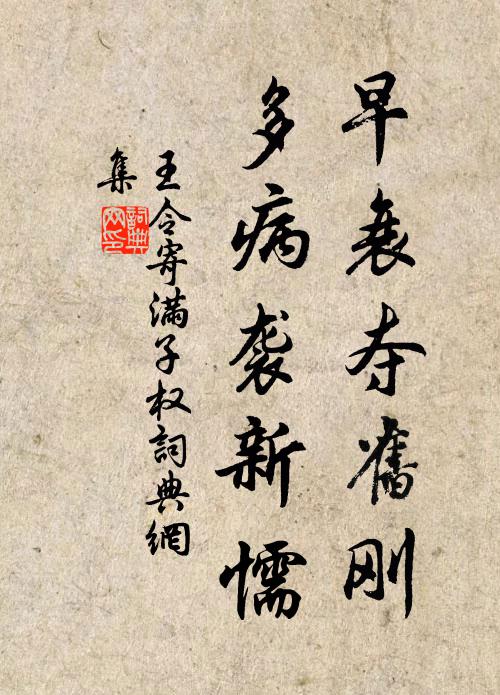 早衰夺舊刚
多病袭新懦
王令寄滿子权詞典網
集
詞典网印